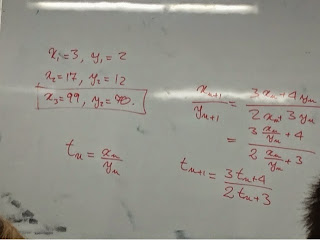 x₁=3, y₁=2
x₂=17, y₂=12
x₃=99, y₃=70.
tₙ = xₙ/yₙ
xₙ₊₁/yₙ₊₁ = (3xₙ+4yₙ)/(2xₙ+3yₙ)
= (3 xₙ/yₙ +4)/(2 xₙ/yₙ +3)
tₙ₊₁ = (3tₙ+4)/(2tₙ+3)